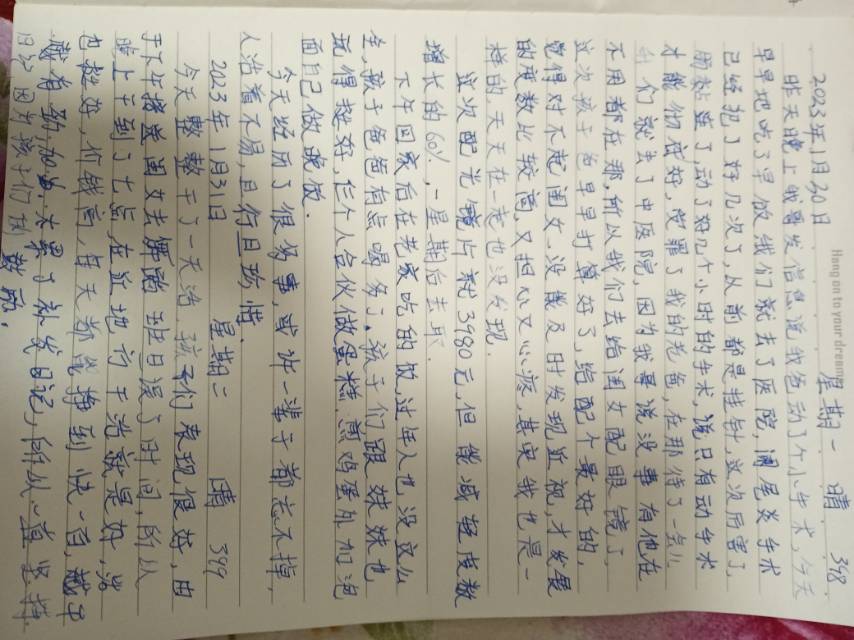 Hang on to your dreams
2023年1月30日 星期一 晴 348
昨天晚上我哥发信息说我爸动了个小手术，今天
早早地吃了早饭我们就去了医院，阑尾炎手术
已经犯了好几次了，从前都是挂针，这次厉害了，
动了好几个小时的手术，说只有动手术
才能彻底好，受罪了我的老爸，在那待了一会儿
我们就去了中医院，因为我哥说没事有他在
不用都在那，所以我们去给闺女配眼镜了，
这次孩子爸早早打算好了，给配个最好的，
觉得对不起闺女，没能及时发现近视，才发展
的度数比较高，又担心又心疼，其实我也是一
样的，天天在一起也没发现.
这次配光镜片就3980元，但能减轻度数
增长的60%，一星期后去取.
下午回家后在老家吃的饭，过年人也没这么
全，孩子爸爸有点喝多了.孩子们跟妹妹也
玩得挺好，仨个人合伙做蛋糕.煎鸡蛋外加泡
面自己做晚饭.
今天经历了很多事，或许一辈子都忘不掉，
人活着不易，且行且珍惜.
2023年1月31日 星期二 晴 349
今天整整干了一天活，孩子们表现很好，由
于下午接送闺女去舞蹈班耽误了时间，所以
晚上干到了七点，在业地订干活就是好，活
也挺好，价钱高，每天都能挣到快一百，
日记，因为孩子们